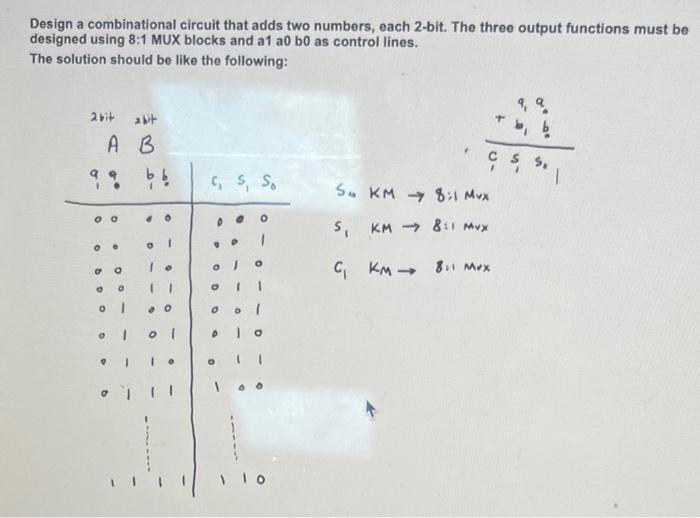 Design a combinational circuit that adds two numbers, each 2-bit. The three output functions must be
designed using 8:1 MUX blocks and a1 a0 b0 as control lines.
The solution should be like the following:
2bit 2bit
A B
a₁ a₀ b₁ b₀ C₁ S₁ S₀
0 0 0 0 0 0 0
0 0 0 1 0 0 1
0 0 1 0 0 1 0
0 0 1 1 0 1 1
0 1 0 0 0 0 1
0 1 0 1 0 1 0
0 1 1 0 0 1 1
0 1 1 1 1 0 0
1 1 1 1 1 1 0
a₁ a₀
+ b₁ b₀
C₁ S₁ S₀
S₀ KM → 8:1 Mux
S₁ KM → 8:1 Mux
C₁ KM → 8:1 Mux